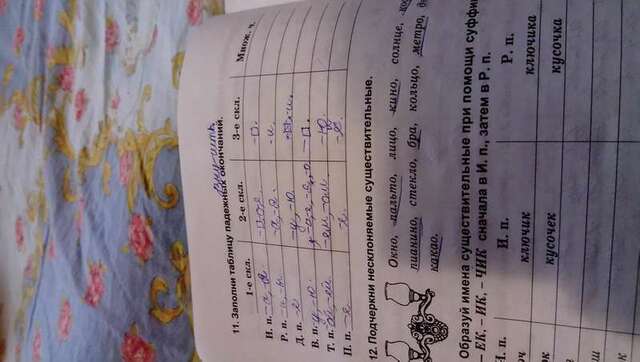 11. Заполни таблицу падежных окончаний.
1-е скл. 2-е скл. 3-е скл. Множ. ч.
И. п. -а, -я
Р. п. -а, -я. -и.
Д. п. -е -у, -ю
В. п. -у, -ю.
Т. п. -ой, -ей -ем, -ом -ю.
П. п. -е -е.
12. Подчеркни несклоняемые существительные.
Окно, пальто, лицо, кино, солнце,
пианино, стекло, бра, кольцо, метро,
какао.
Образуй имена существительные при помощи суффи
– ЕК, – ИК, – ЧИК сначала в И. п., затем в Р. п.
И. п. И. п. Р. п.
ключик ключика
кусочек кусочка